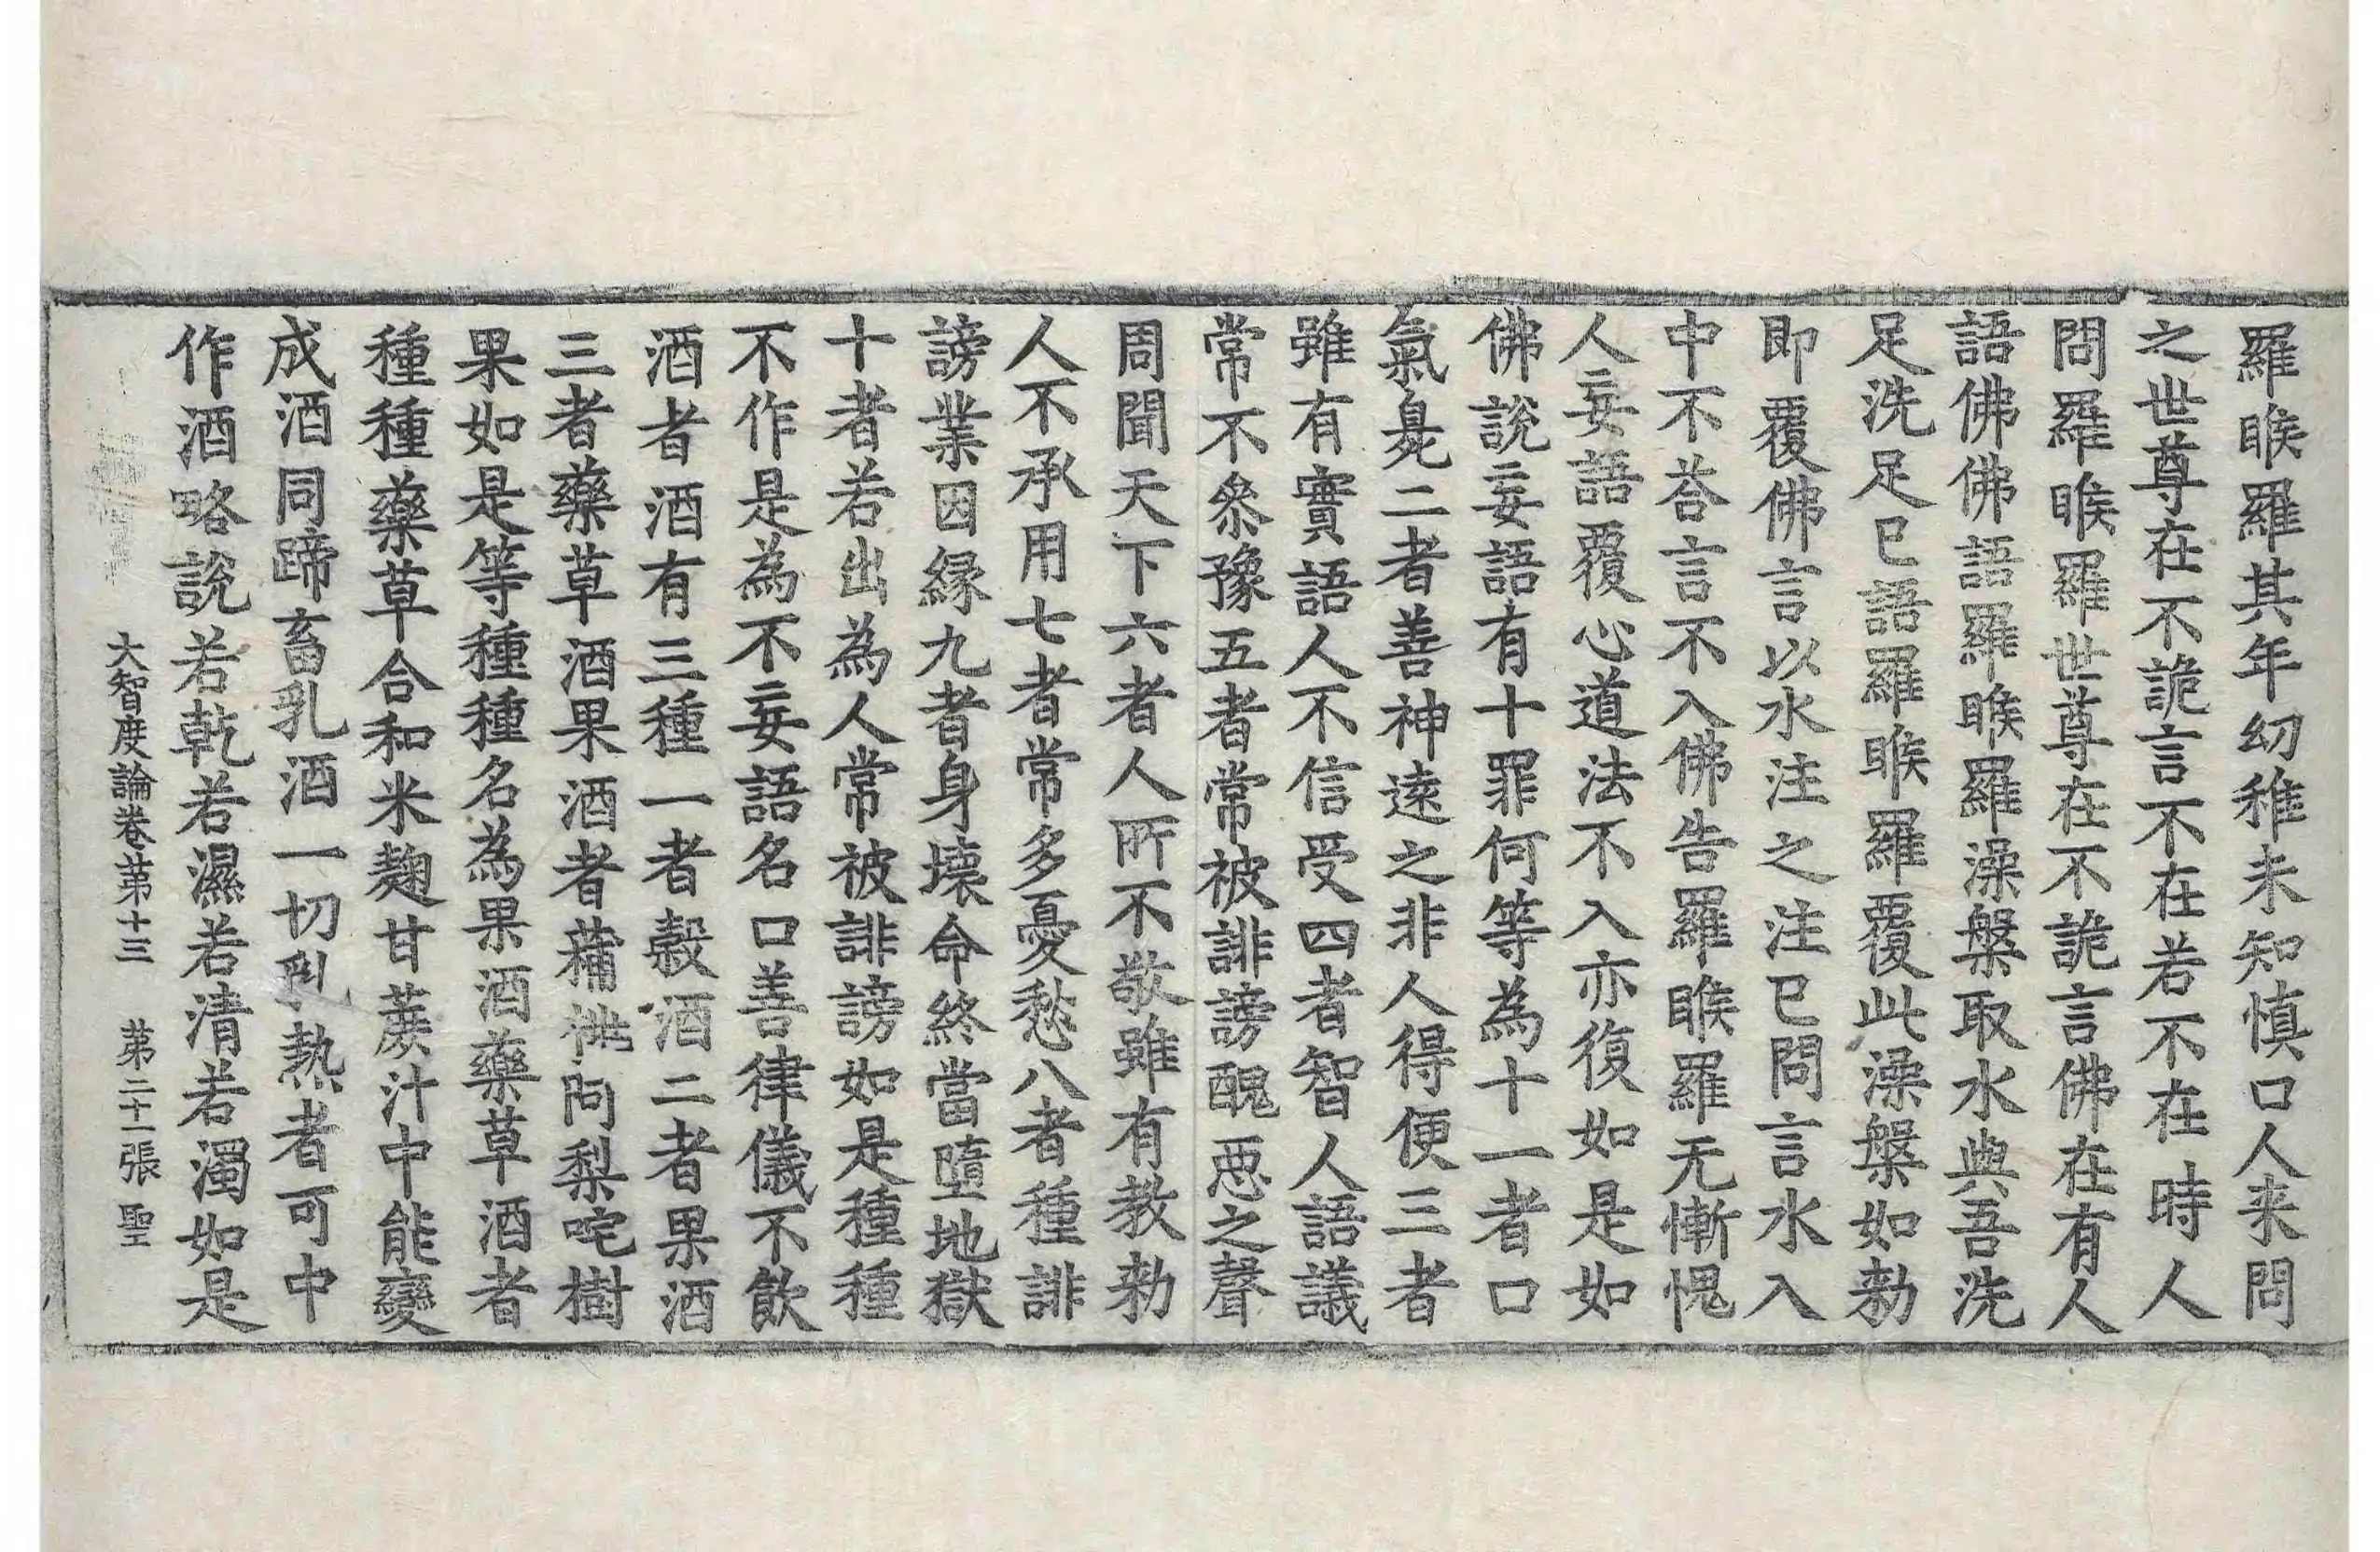 羅睺羅其年幼稚未知慎口人来問
之世尊在不詭言不在若不在時人
問羅睺羅世尊在不詭言佛在有人
語佛佛語羅睺羅澡槃取水與吾洗
足洗足已語羅睺羅覆此澡槃如勑
即覆佛言以水注之注已問言水入
中不荅言不入佛告羅睺羅无慚愧
人妄語覆心道法不入亦復如是如
佛說妄語有十罪何等為十一者口
氣臰二者善神遠之非人得便三者
雖有實語人不信受四者智人語議
常不叅豫五者常被誹謗醜惡之聲
周聞天下六者人所不敬雖有教勑
人不承用七者常多憂愁八者種誹
謗業因縁九者身壞命終當墮地獄
十者若出為人常被誹謗如是種種
不作是為不妄語名口善律儀不飲
酒者酒有三種一者穀酒二者果酒
三者藥草酒果酒者蒱桃阿梨咤樹
果如是等種種名為果酒藥草酒者
種種藥草合和米麴甘蔗汁中能變
成酒同蹄畜乳酒一切乳熱者可中
作酒略說若乾若濕若清若濁如是
大智度論卷苐十三 苐二十一張 聖